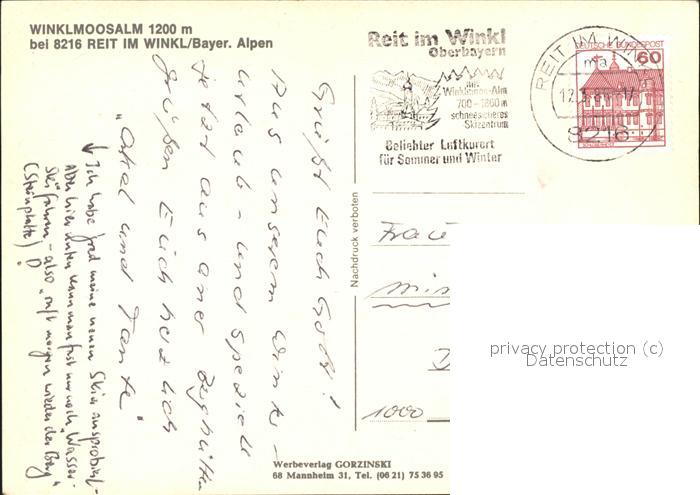 WINKLMOOSALM 1200 m
bei 8216 REIT IM WINKL/Bayer. Alpen
Reit im Winkl
Oberbayern
mit
Winklmoos-Alm
700-1800 m
schneesicheres
Skizentrum
Beliebter Luftkurort
für Sommer und Winter
REIT IM WINKL
ma
8216
DEUTSCHE BUNDESPOST
60
Grüßt Euch Gott!
Aus unserem Winter-
urlaub - und speziell
jetzt aus einer Berghütte
grüßen Euch herzlich
"Onkel und Tante"
↓ Ich habe grad meine neuen Skier ausprobiert -
Aber hier unten kann man fast nur noch "Wasser-
Skifahren" - also ruft morgen wieder der Berg
(Steinplatte)!
Nachdruck verboten
Frau
1000
privacy protection (c)
Datenschutz
Werbeverlag GORZINSKI
68 Mannheim 31, Tel. (06 21) 75 36 95